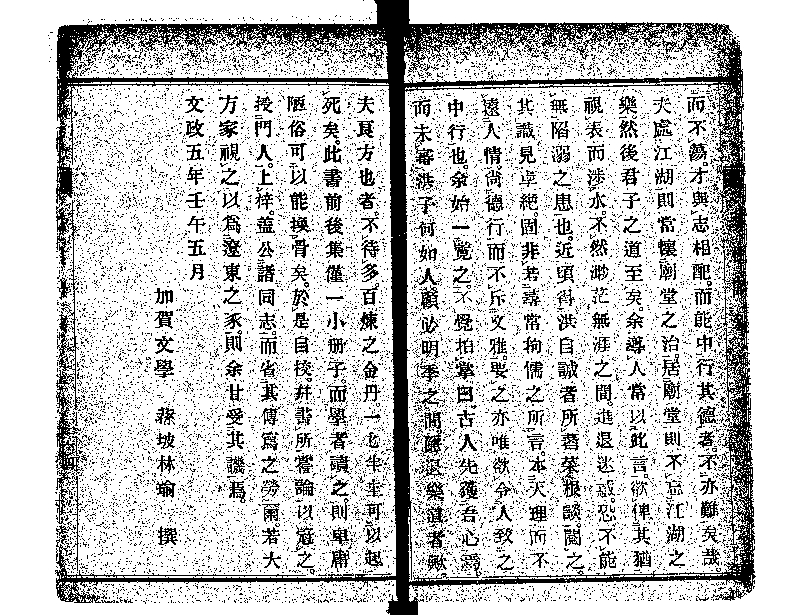 而不蕩。才與志相配。而能中行其德者不亦難矣哉
夫處江湖則常懷廟堂之治。居廟堂則不忘江湖之
樂然後君子之道至矣余導人常以此言。欲俾其猶
視表而涉水。不然渺茫無涯之間進退迷惑。恐不能
無陷溺之患也。近頃得洪自誠者所著菜根談閱之。
其識見卓絕。固非若尋常拘儒之所言。本天理而不
遠人情尚德行而不斥文雅。要之亦唯欲令人致之
中行也。余始一覽之。不覺拍掌曰古人先獲吾心焉。
而未審洪子何如人。顧必明季之間隱退樂道者歟。
夫良方也者。不待多。百煉之金丹一匕半圭可以起
死矣。此書前後集僅一小册子而學者讀之則卑庸
陋俗可以能換骨矣。於是自校。幷書所嘗論以冠之。
授門人。上梓。蓋公諸同志。而省其傳寫之勞爾若大
方家視之以爲遼東之豕則余甘受其譏焉。
文政五年壬午五月
加賀文學 蓀坡林瑜 撰